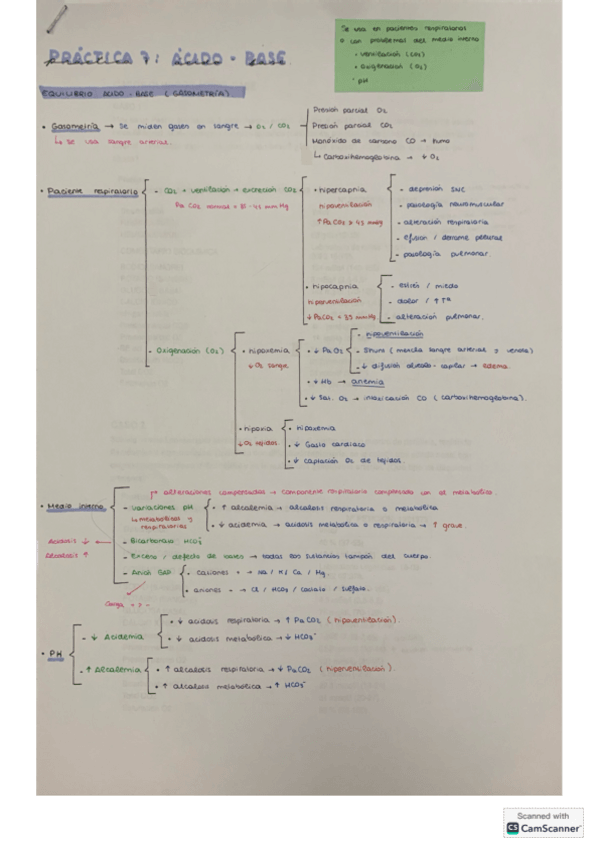 PRÁCTICA 7: ÁCIDO - BASE.
Se usa en pacientes respiratorios
o con problemas del medio interno
· ventilación (CO2)
· oxigenación (O2)
· pH
EQUILIBRIO ÁCIDO - BASE (GASOMETRÍA).
· Gasometría → se miden gases en sangre → O2 / CO2
↳ se usa sangre arterial.
Presión parcial O2
Presión parcial CO2
Monóxido de carbono CO → humo
↳ Carboxihemoglobina → ↓ O2
· Paciente respiratorio
- CO2 + ventilación → excreción CO2
Pa CO2 normal = 35 - 45 mm Hg
· hipercapnia
hipoventilación
↑ PaCO2 > 45 mmHg
- depresión SNC
- patología neuromuscular
- alteración respiratoria
- efusión / derrame pleural
- patología pulmonar.
· hipocapnia
hiperventilación
↓ PaCO2 < 35 mmHg
- estrés / miedo
- dolor / ↑ Tª
- alteración pulmonar.
- Oxigenación (O2)
· hipoxemia
↓ O2 sangre
· ↓ PaO2
- hipoventilación
- Shunt (mezcla sangre arterial y venosa)
- ↓ difusión alveolo - capilar → edema.
· ↓ Hb → anemia
· ↓ Sat. O2 → intoxicación CO (carboxihemoglobina).
· hipoxia
↓ O2 tejidos.
· hipoxemia
· ↓ Gasto cardiaco
· ↓ captación O2 de tejidos.
· Medio interno
alteraciones compensadas → componente respiratorio compensado con el metabólico.
- Variaciones pH
↳ metabólicas y respiratorias
· ↑ alcalemia → alcalosis respiratoria o metabólica
· ↓ acidemia → acidosis metabólica o respiratoria → ↑ grave.
Acidosis ↓
Alcalosis ↑
- Bicarbonato HCO3-
- Exceso / defecto de bases → todas las sustancias tampón del cuerpo.
- Anión GAP
· cationes + → Na / K / Ca / Mg.
· aniones - → Cl / HCO3 / lactato / sulfato.
Carga + > -
· PH
- ↓ Acidemia
· ↓ acidosis respiratoria → ↑ PaCO2 (hipoventilación).
· ↓ acidosis metabólica → ↓ HCO3-
- ↑ Alcalemia
· ↑ alcalosis respiratoria → ↓ PaCO2 (hiperventilación).
· ↑ alcalosis metabólica → ↑ HCO3-
Scanned with
CS CamScanner